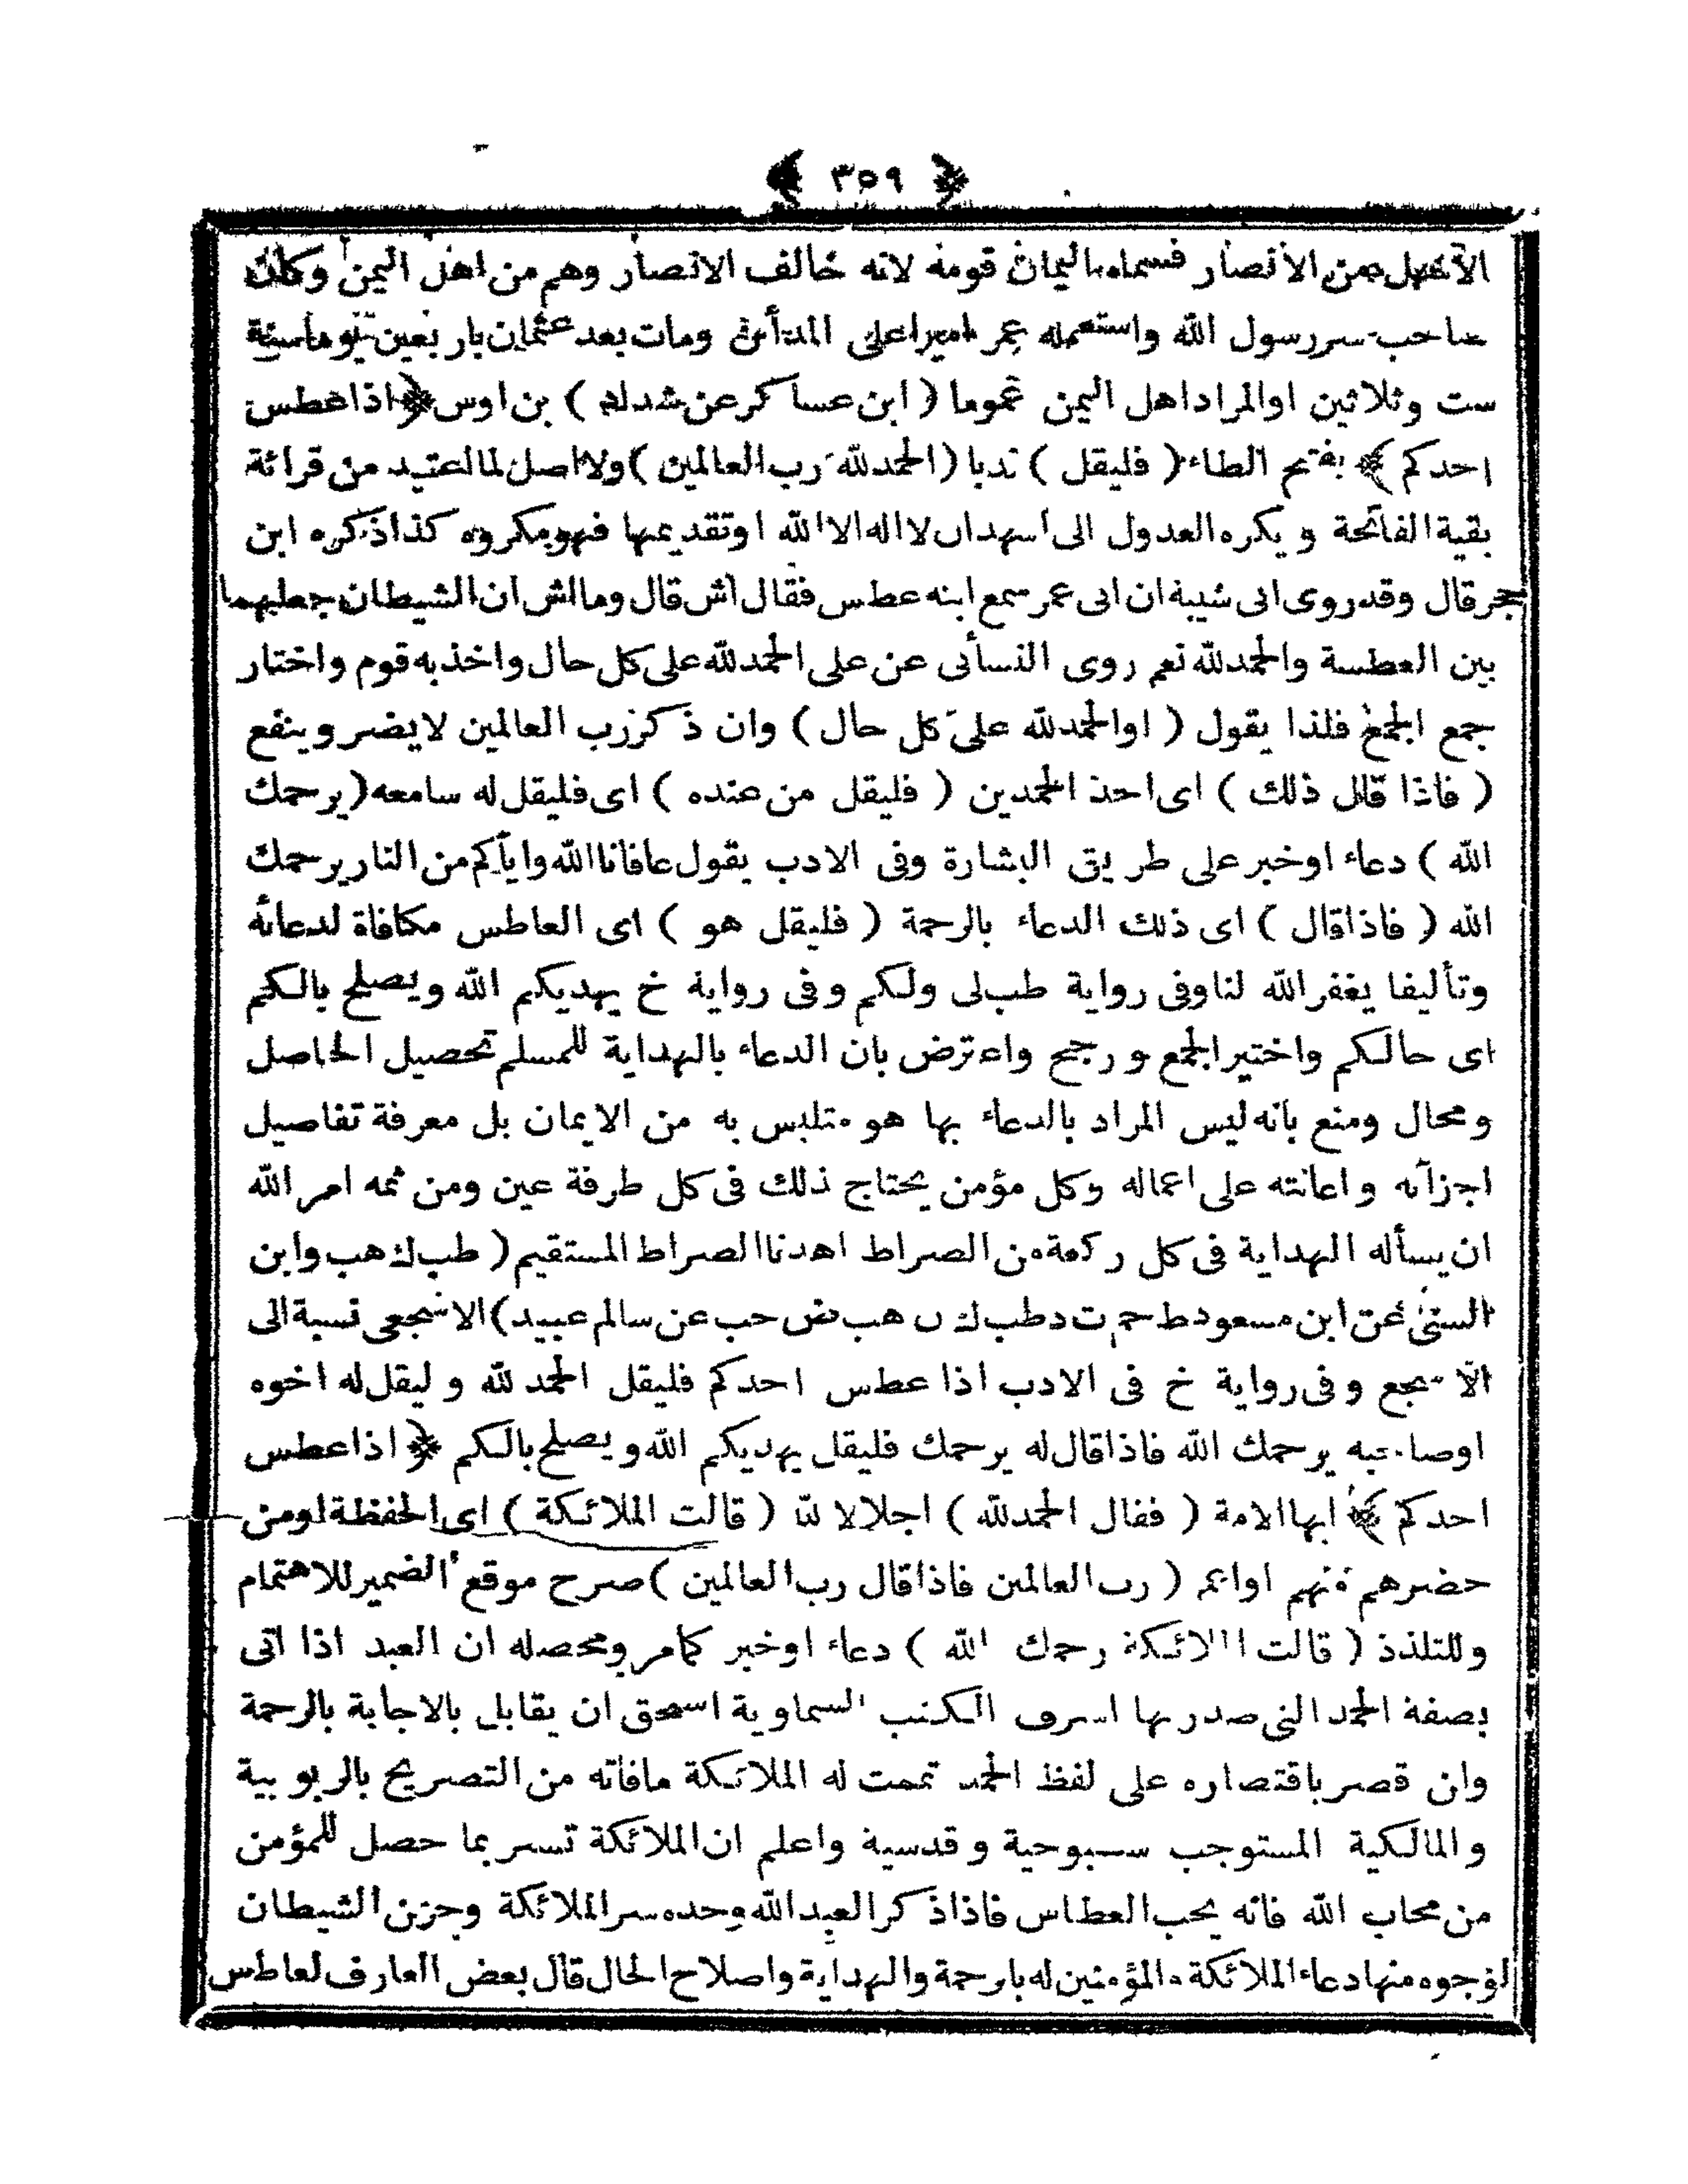 ﴿ ٣٥٩ ﴾
من الانصار فسماه اليمان قومه لانه خالف الانصار وهم من اهل اليمن وكان
صاحب سر رسول الله واستعمله عمر اميرا على المدائن ومات بعد عثمان باربعين يوما سنة
ست وثلاثين او المراد اهل اليمن عموما ( ابن عساكر عن شداد ) بن اوس ﴿ اذا عطس
احدكم ﴾ بفتح الطاء ( فليقل ) ندبا ( الحمد لله رب العالمين ) ولا اصل لما اعتيد من قرائة
بقية الفاتحة ويكره العدول الى اشهد ان لا اله الا الله او تقديمها فهو مكروه كذا ذكره ابن
حجر قال وقد روى ابى شيبة ان ابى عمر سمع ابنه عطس فقال اش قال وما اش ان الشيطان جعلها
بين العطسة والحمد لله نعم روى النسأى عن على الحمد لله على كل حال واخذ به قوم واختار
جمع الجمع فلذا يقول ( او الحمد لله على كل حال ) وان ذكر رب العالمين لا يضر وينفع
( فاذا قال ذلك ) اى احد الحمدين ( فليقل من عنده ) اى فليقل له سامعه ( يرحمك
الله ) دعاء او خبر على طريق البشارة وفى الادب يقول عافانا الله واياكم من النار يرحمك
الله ( فاذا قال ) اى ذلك الدعاء بالرحمة ( فليقل هو ) اى العاطس مكافاة لدعائه
وتأليفا يغفر الله لنا وفى رواية طب لى ولكم وفى رواية خ يهديكم الله ويصلح بالكم
اى حالكم واختير الجمع ورجح واعترض بان الدعاء بالهداية للمسلم تحصيل الحاصل
ومحال ومنع بانه ليس المراد بالدعاء بها هو متلبس به من الايمان بل معرفة تفاصيل
اجزآئه واعانته على اعماله وكل مؤمن يحتاج ذلك فى كل طرفة عين ومن ثمه امر الله
ان يسأله الهداية فى كل ركعة من الصراط اهدنا الصراط المستقيم ( طب ك هب وابن
السنى عن ابن مسعود ط حم ت د طب ك ن هب ض حب عن سالم عبيد ) الاشجعى نسبة الى
الاشجع وفى رواية خ فى الادب اذا عطس احدكم فليقل الحمد لله وليقل له اخوه
او صاحبه يرحمك الله فاذا قال له يرحمك فليقل يهديكم الله ويصلح بالكم ﴿ اذا عطس
احدكم ﴾ ايها الامة ( فقال الحمد لله ) اجلالا لله ( قالت الملائكة ) اى الحفظة او من
حضرهم منهم او اعم ( رب العالمين فاذا قال رب العالمين ) صرح موقع الضمير للاهتمام
وللتلذذ ( قالت الملائكة رحمك الله ) دعاء او خبر كمامر ومحصله ان العبد اذا اتى
بصفة الحمد التى صدر بها اشرف الكتب السماوية استحق ان يقابل بالاجابة بالرحمة
وان قصر باقتصاره على لفظ الحمد تممت له الملائكة مافاته من التصريح بالربوبية
والمالكية المستوجب سبوحية وقدسية واعلم ان الملائكة تسر بما حصل للمؤمن
من محاب الله فانه يحب العطاس فاذا ذكر العبد الله وحده سر الملائكة وحزن الشيطان
لوجوه منها دعاء الملائكة والمؤمنين له بالرحمة والهداية واصلاح الحال قال بعض العارف لعاطس